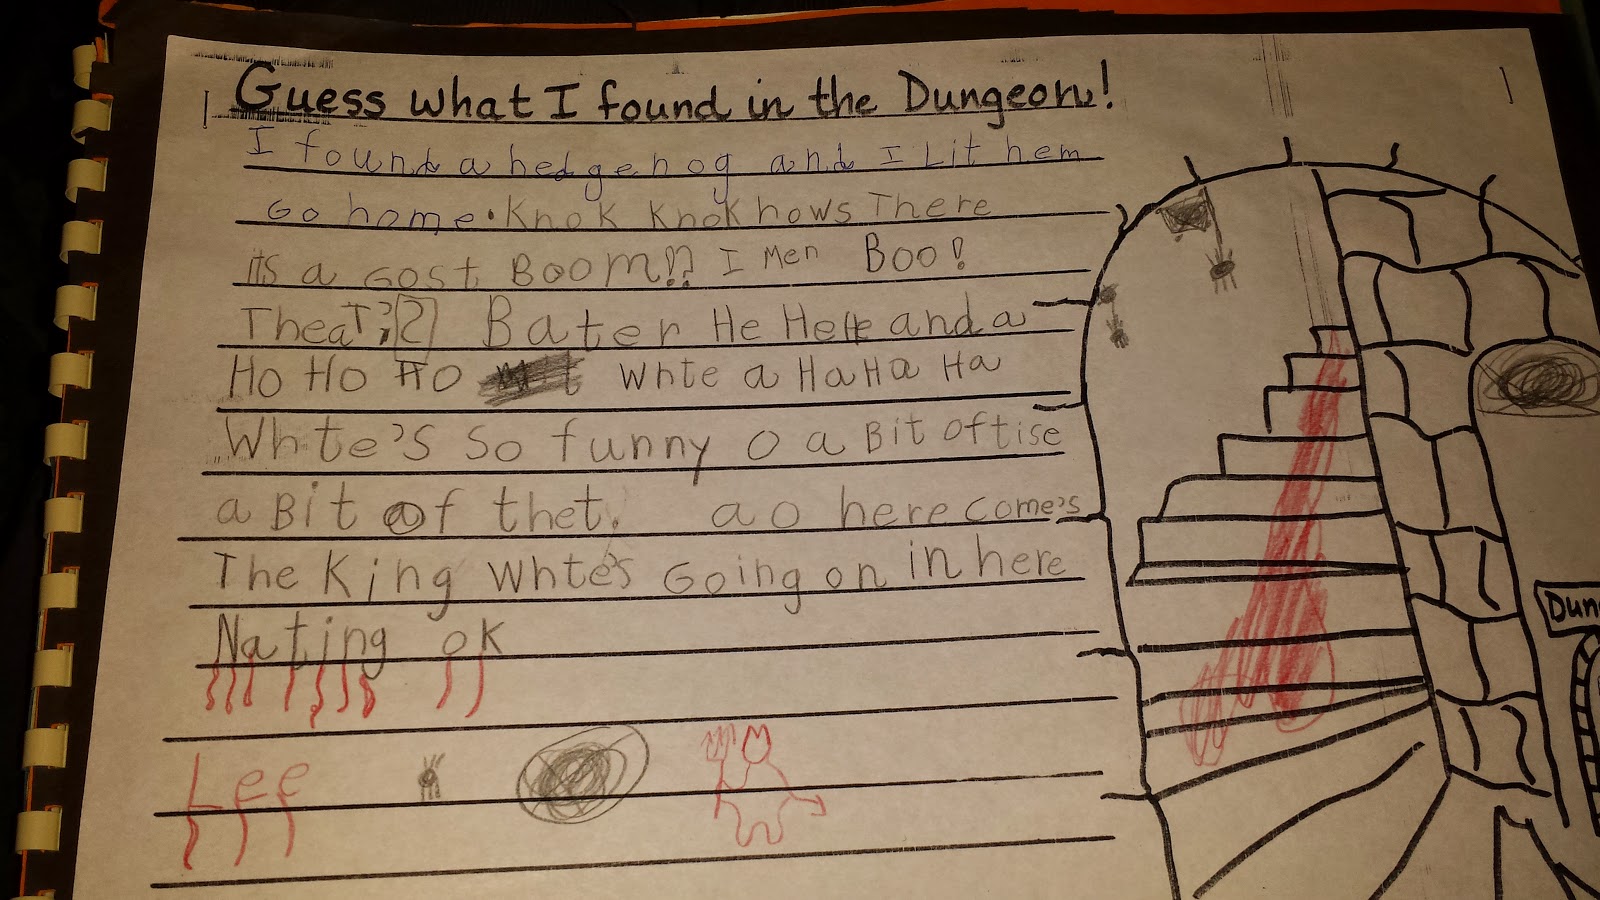 Guess what I found in the Dungeon!
I found a hedgehog and I Lit hem
Go home. Knok Knok hows There
its a Gost BOOM!? I Men Boo!
Theat's Bater He Hehe and a
Ho Ho Ho Whte a HaHa Ha
Whte's So funny O a Bit oftise
a Bit of thet. ao here come's
The King Whte's Going on in here
Nating ok
Lee
Dun